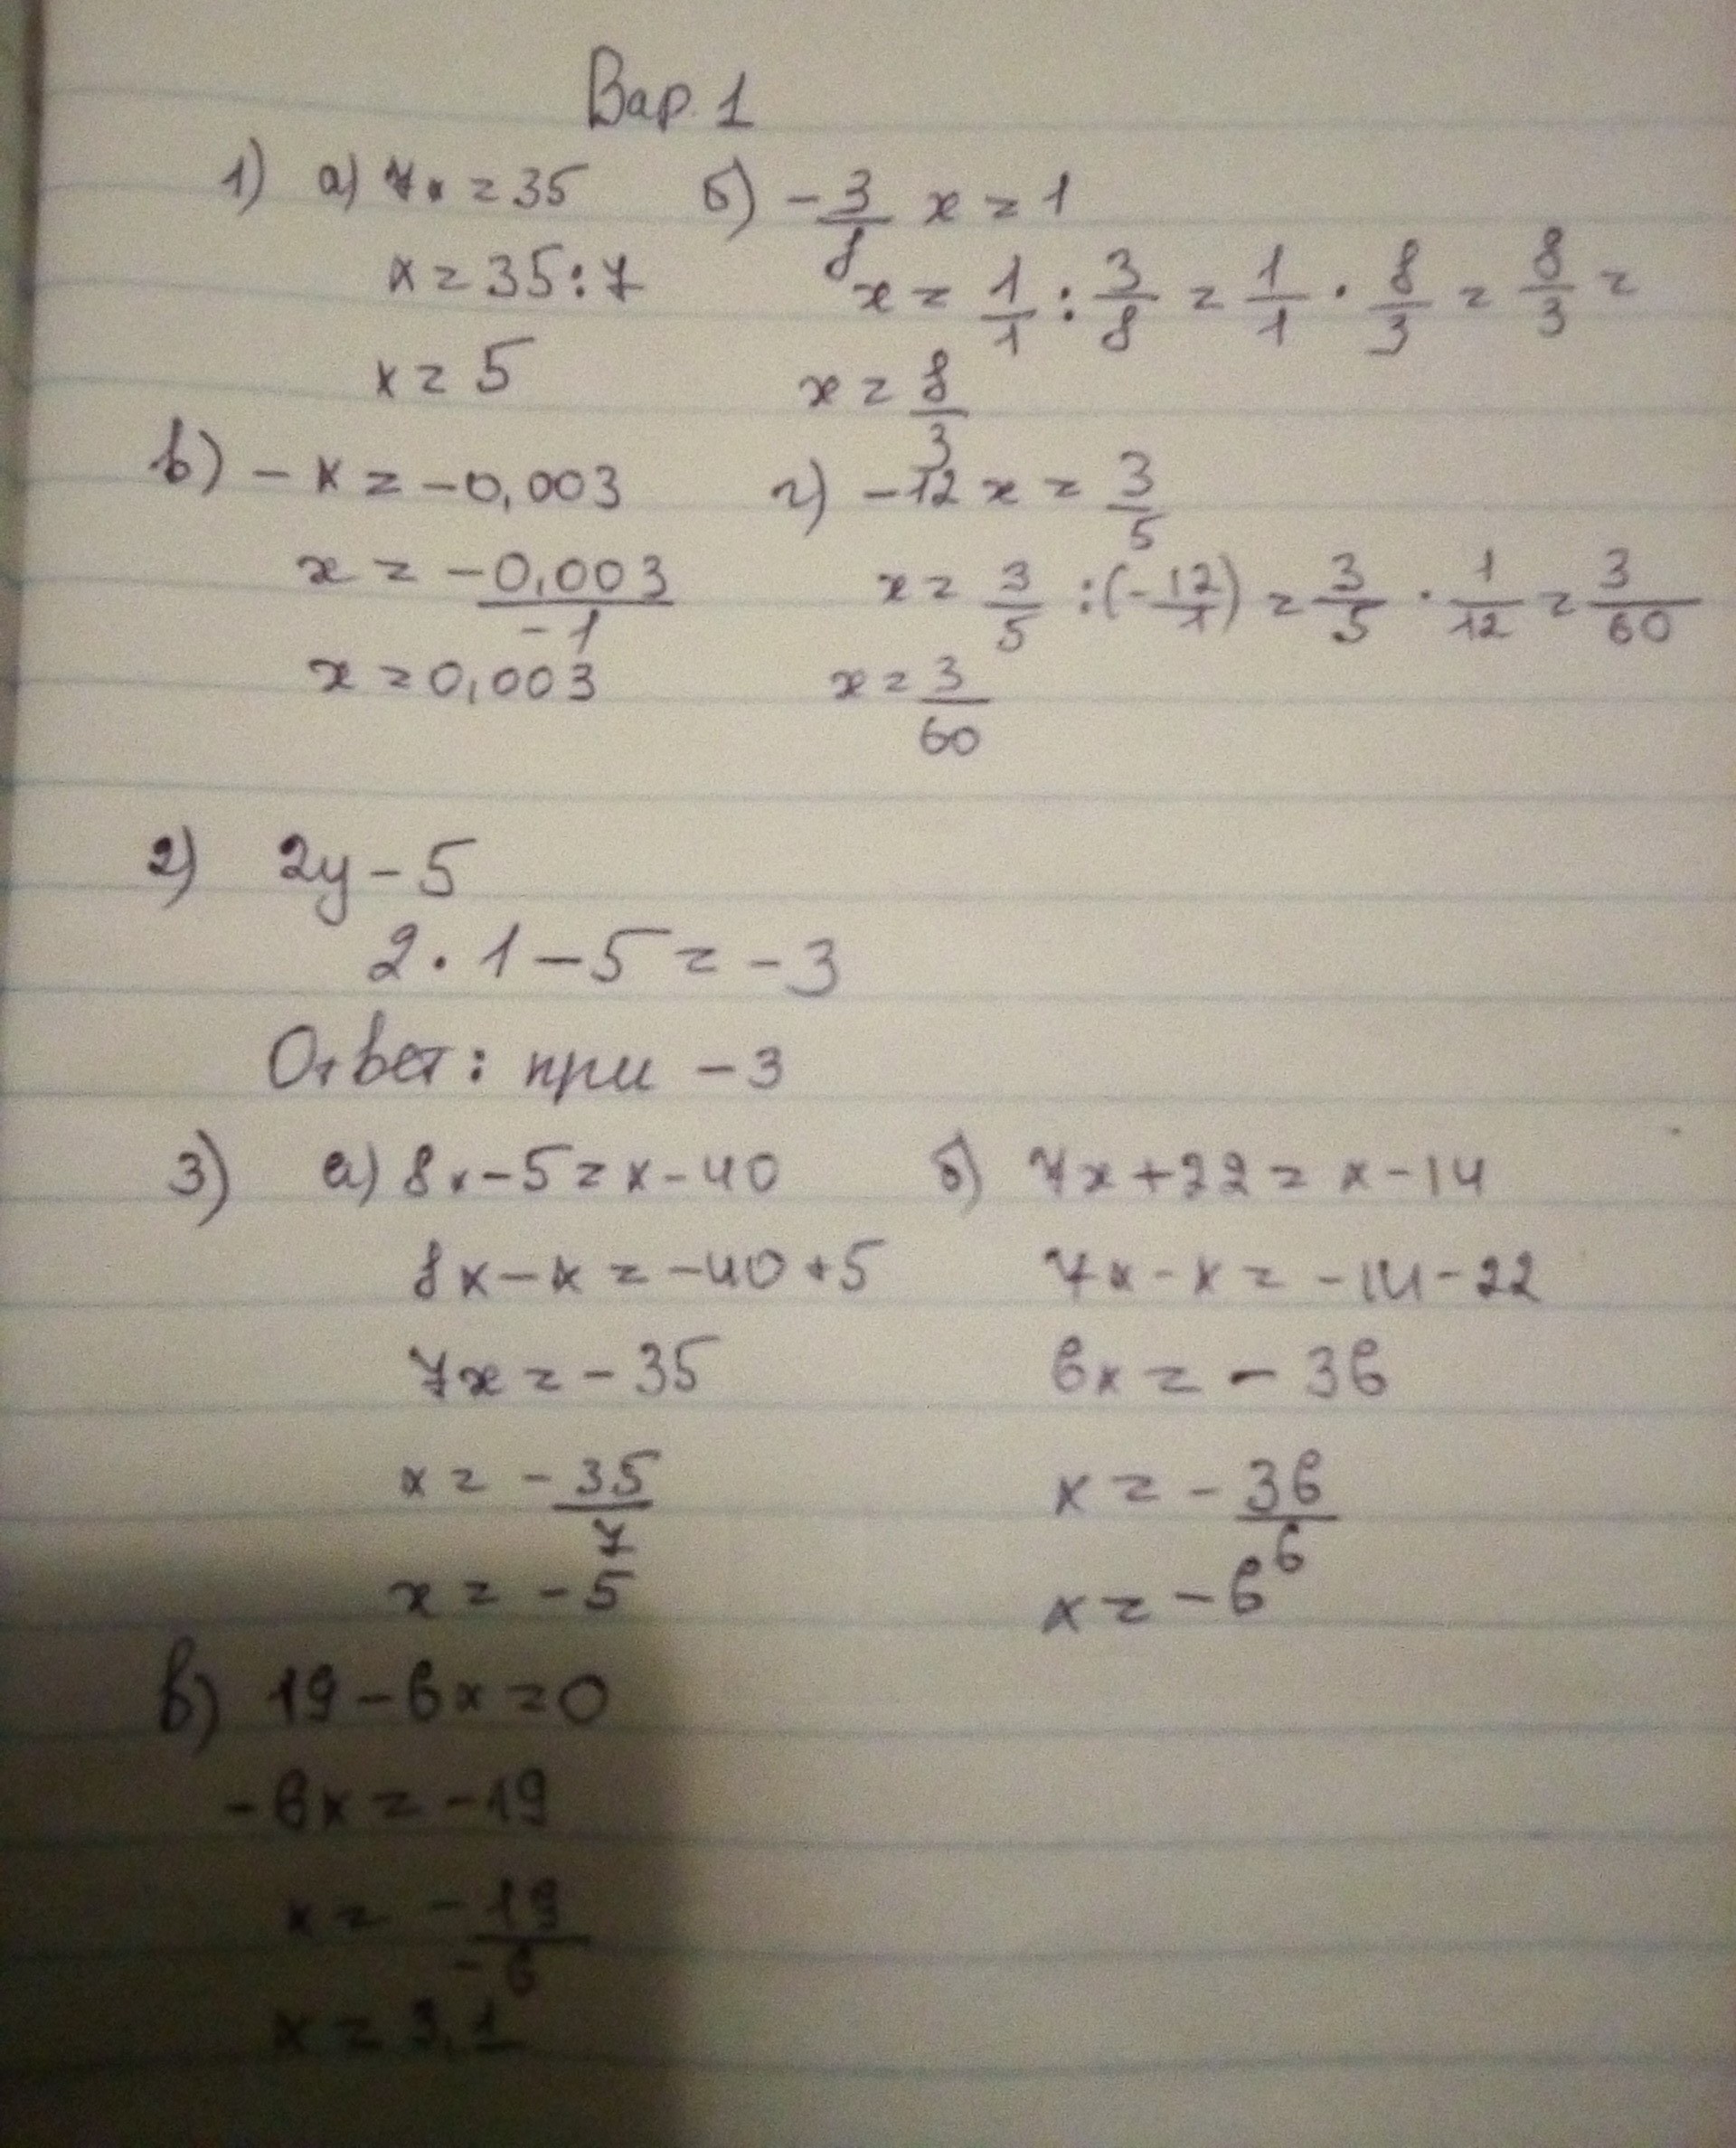 Вар. 1
1) а) 7x = 35 б) -3/8 x = 1
x = 35:7 x = 1/1 : 3/8 = 1/1 · 8/3 = 8/3 =
x = 5 x = 8/3
в) -x = -0,003 г) -12x = 3/5
x = -0,003/-1 x = 3/5 :(-12/1) = 3/5 · 1/12 = 3/60
x = 0,003 x = 3/60
2) 2y - 5
2·1-5 = -3
Ответ: при -3
3) а) 8x-5 = x-40 б) 7x+22 = x-14
8x-x = -40+5 7x-x = -14-22
7x = -35 6x = -36
x = -35/7 x = -36/6
x = -5 x = -6
в) 19-6x = 0
-6x = -19
x = -19/-6
x = 3,1